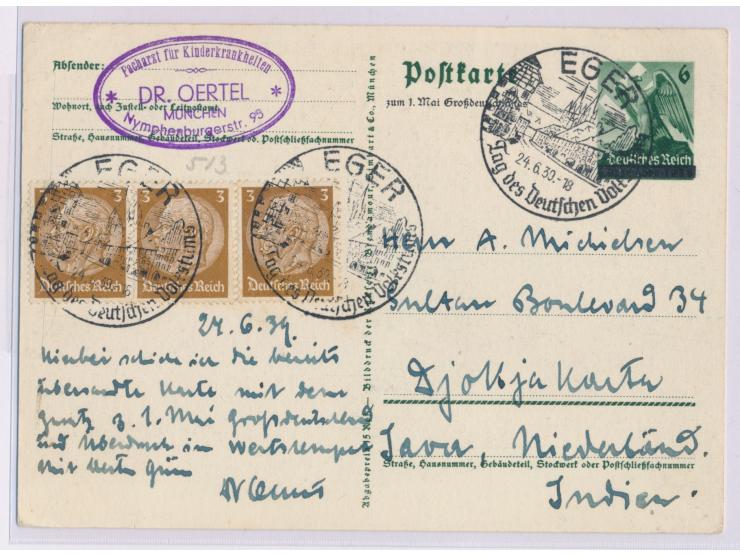 Absender:
Facharzt für Kinderkrankheiten
* DR. OERTEL *
MÜNCHEN
Nymphenburgerstr. 95
Wohnort, auch Zustell- oder Leitpostamt
Straße, Hausnummer, Gebäudeteil, Stockwerk od. Postschließfachnummer
513
Postkarte
zum 1. Mai
6
Deutsches Reich
EGER
24.6.39.-18
Tag des Deutschen
EGER
EGER
3
3
3
Deutsches Reich
Deutsches Reich
Deutsches Reich
24.6.39
Hierbei schicke ich die bereits
übersandte Karte mit dem
z. 1. Mai
und Überdruck im Wertstempel
Mit besten
Herrn A. Michielsen
Sultan Boulevard 34
Djokjakarta
Java, Niederländ.
Indien.
Straße, Hausnummer, Gebäudeteil, Stockwerk oder Postschließfachnummer